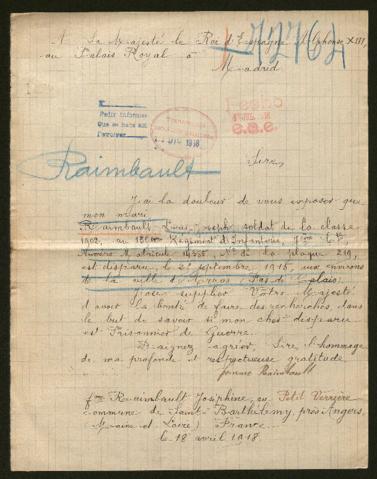 A Sa Majesté le Roi d'Espagne Alphonse XIII,
au Palais Royal à
Madrid
72764
Pedir informes
que se hace así
Fecho
1918
Raimbault
Sire,
J'ai la douleur de vous exposer que
mon mari
Raimbault, Louis-Joseph, soldat de la classe
1902, au Régiment d'Infanterie, Cie,
Numéro Matricule N° de la plaque 210,
est disparu le 25 septembre 1915, aux environs
de la ville d'Arras (Pas de Calais)
supplier Votre Majesté
d'avoir la bonté de faire des recherches, dans
le but de savoir si mon cher disparu
est Prisonnier de Guerre.
Daignez agréer, Sire, l'hommage
de ma profonde et respectueuse gratitude
femme Raimbault
fme Raimbault Joséphine, au Petit Verrière
commune de Saint-Barthélemy, près Angers,
(Maine et Loire) France
le 18 avril 1918.